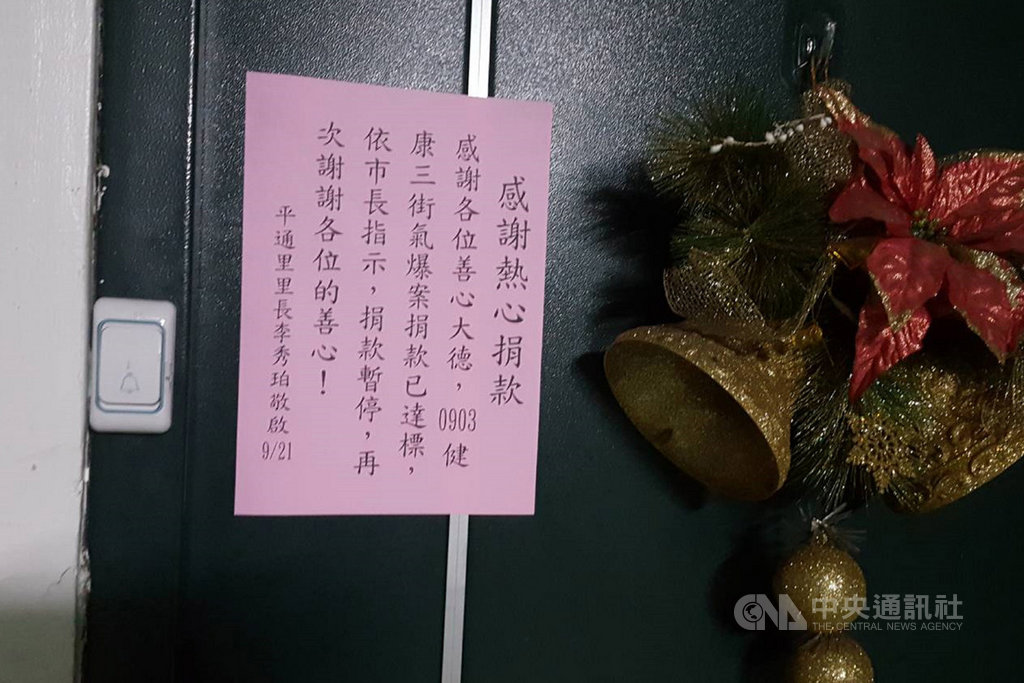 感謝熱心捐款
感謝各位善心大德，0903 健
康三街氣爆案捐款已達標，
依市長指示，捐款暫停，再
次謝謝各位的善心！
平通里里長李秀珀敬啟 9/21
CNA 中央通訊社
THE CENTRAL NEWS AGENCY